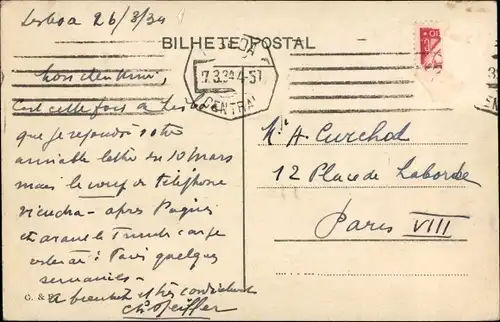 Lisboa 26/3/34
BILHETE POSTAL
7.3.34 4-5T
CENTRAL
Mon cher Ami,
C'est cette fois de Lisboa
que je réponds à votre
aimable lettre du 10 mars
mais le coup de téléphone
viendra - après Pâques
et avant le
quelques
semaines -
A bientôt et très cordialement
Pfeiffer
M. A. Curchod
12 Place de Laborde
Paris VIII
G. &